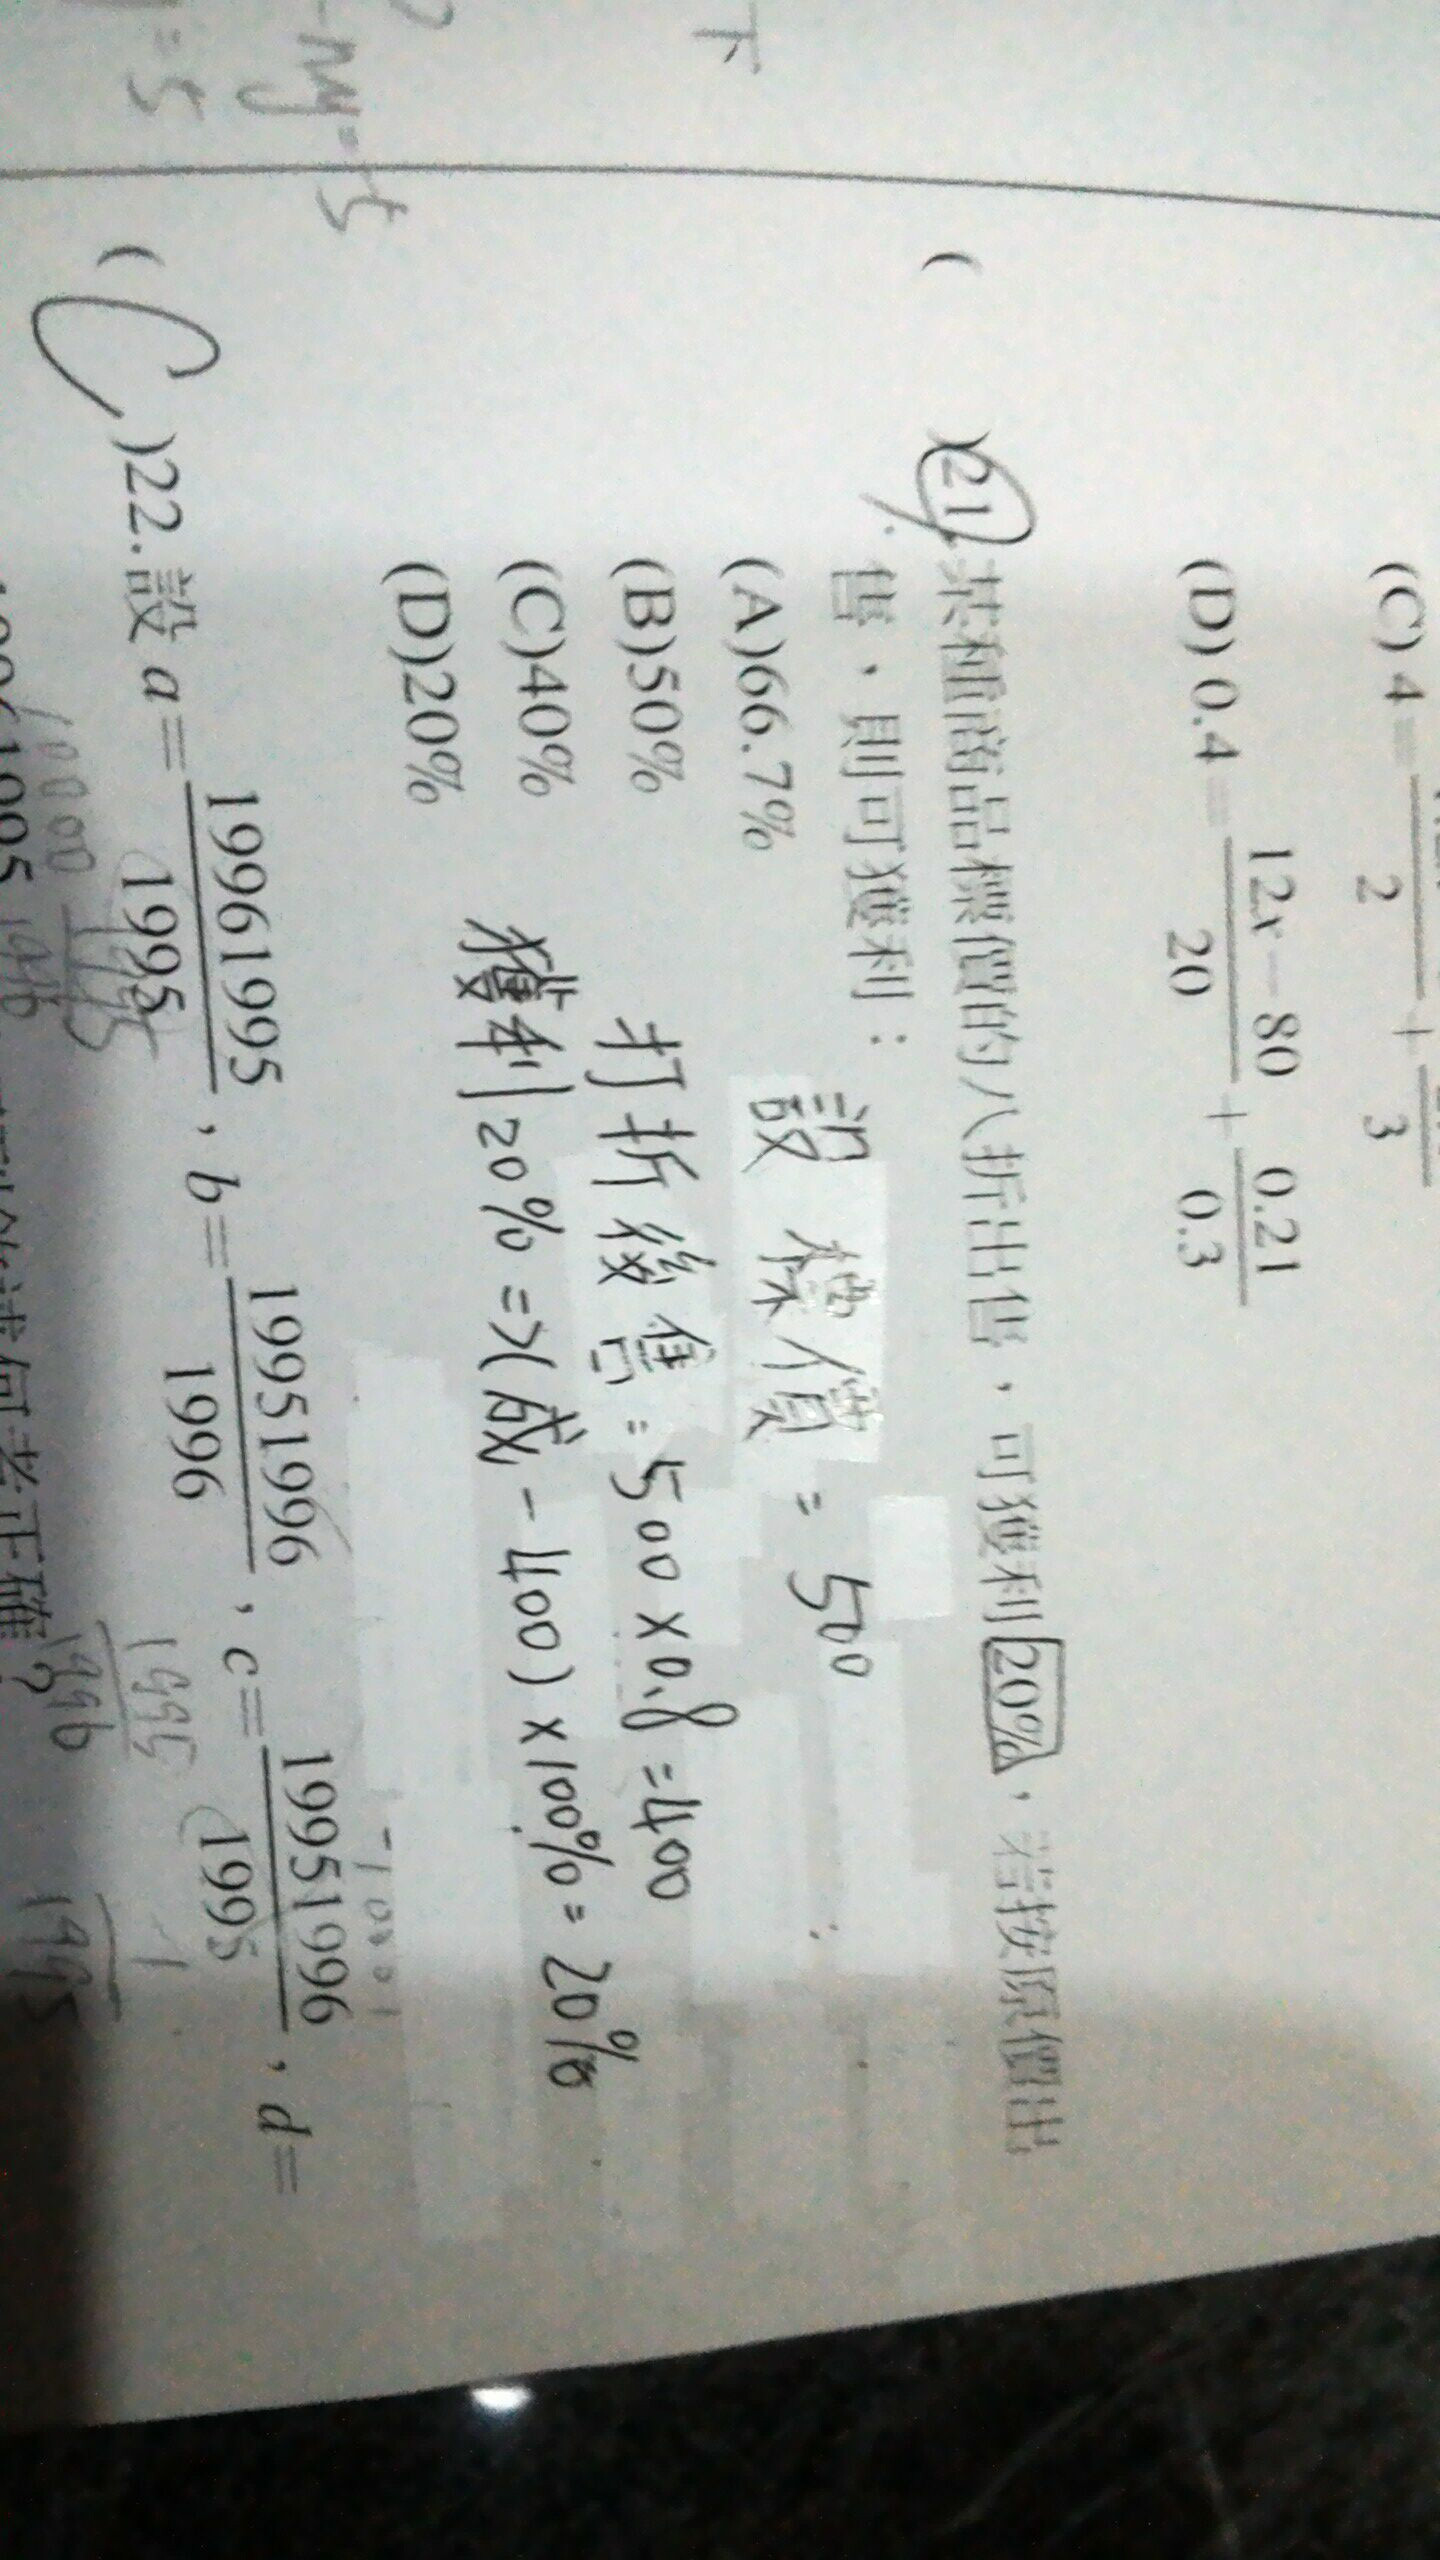 下
-my=-5
=5
(C) 4 =
2
+
3
(D) 0.4 = 12x-80/20 + 0.21/0.3
( )21.某種商品標價的八折出售，可獲利20%，若按原價出
售，則可獲利：
(A)66.7%
(B)50%
(C)40%
(D)20%
設標價=500
打折後售=500×0.8=400
獲利20%=>(成-400)×100%=20%
-10001
(C)22.設 a=19961995/1995，b=19951996/1996，c=19951996/1995，d=
10000
1995
1995
1996
1
1995
何者正確？